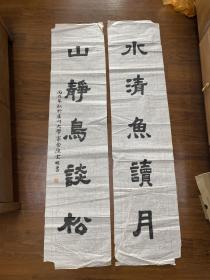 水清魚讀月
山靜鳥談松